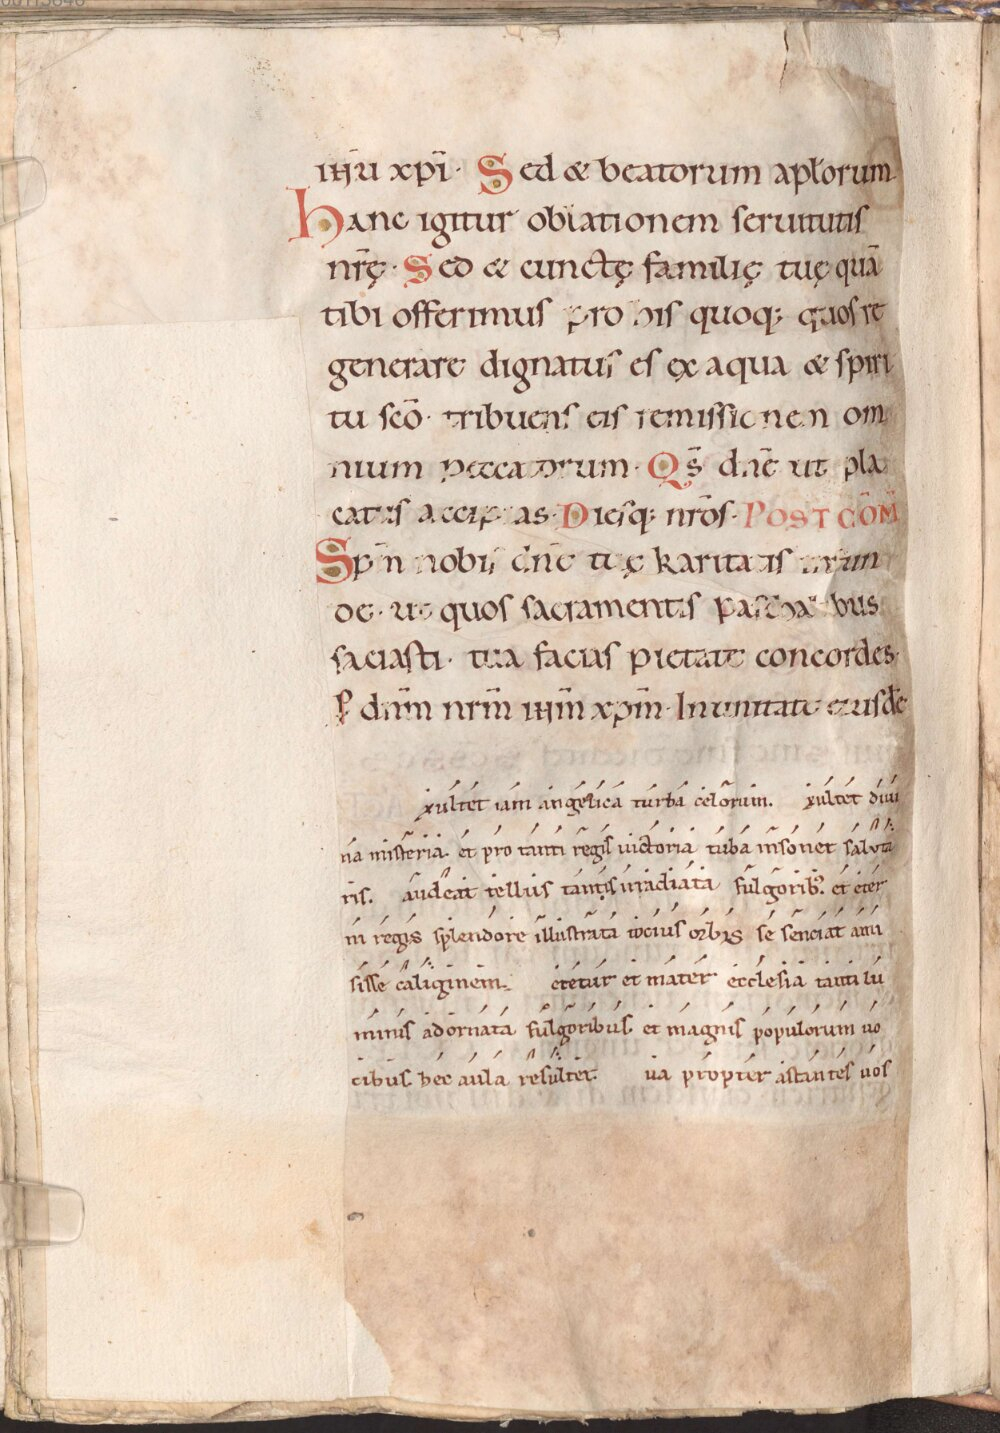 ihu xpi. Sed & beatorum aplorum
Hanc igitur oblationem seruitutis
nrę. Sed & cunctę familię tuę quā
tibi offerimus pro his quoq; quos re
generare dignatus es ex aqua & spiri
tu scō. tribuens eis remissionem om
nium peccatorum. Qs dne ut pla
catus accipias. Diesq; nros. POST COM
Spm nobis dne tuę karitatis infun
de. ut quos sacramentis paschalibus
saciasti. tua facias pietate concordes.
P dnm nrm ihm xpm. In unitate eiusde
xultet iam angelica turba celorum. xultet diui
na misteria. et pro tanti regis uictoria tuba insonet saluta
ris. audeat tellus tantis irradiata fulgorib; et eter
ni regis splendore illustrata tocius orbis se senciat ami
sisse caliginem. etetur et mater ecclesia tanti lu
minis adornata fulgoribus. et magnis populorum uo
cibus hec aula resultet. ua propter astantes uos